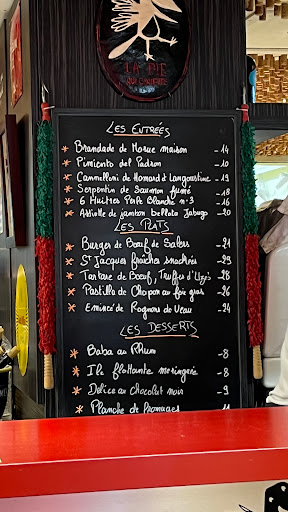 LA PIE
LES ENTRÉES
* Brandade de Morue maison - 14
* Pimiento del Padron - 10
* Cannelloni de Homard et Langoustine - 19
* Serpentin de Saumon fumé - 18
* 6 Huîtres Perle Blanche n°3 - 16
* Assiette de jambon bellota Jabugo - 20
LES PLATS
* Burger de Boeuf de Salers - 21
* St Jacques fraîches snackées - 29
* Tartare de Boeuf, Truffes d'Uzès - 28
* Pastilla de Chapon au foie gras - 26
* Emincé de Rognons de Veau - 24
LES DESSERTS
* Baba au Rhum - 8
* Ile flottante meringuée - 8
* Délice au chocolat noir - 9
* Planche de fromages - 11